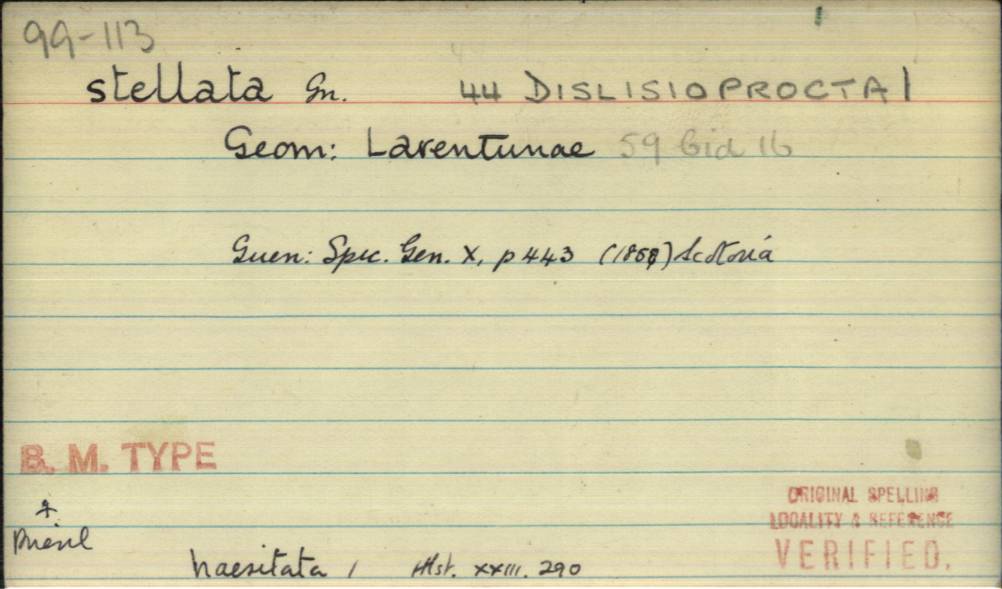 99-113
stellata Gn. 44 DISLISIOPROCTA 1
Geom: Larentiinae 59 Gid 16
Guen: Spec. Gen. X, p 443 (1858) Scotosia
B. M. TYPE
ORIGINAL SPELLING
LOCALITY & REFERENCE
VERIFIED.
haesitata 1 Hlst. xxiii. 290